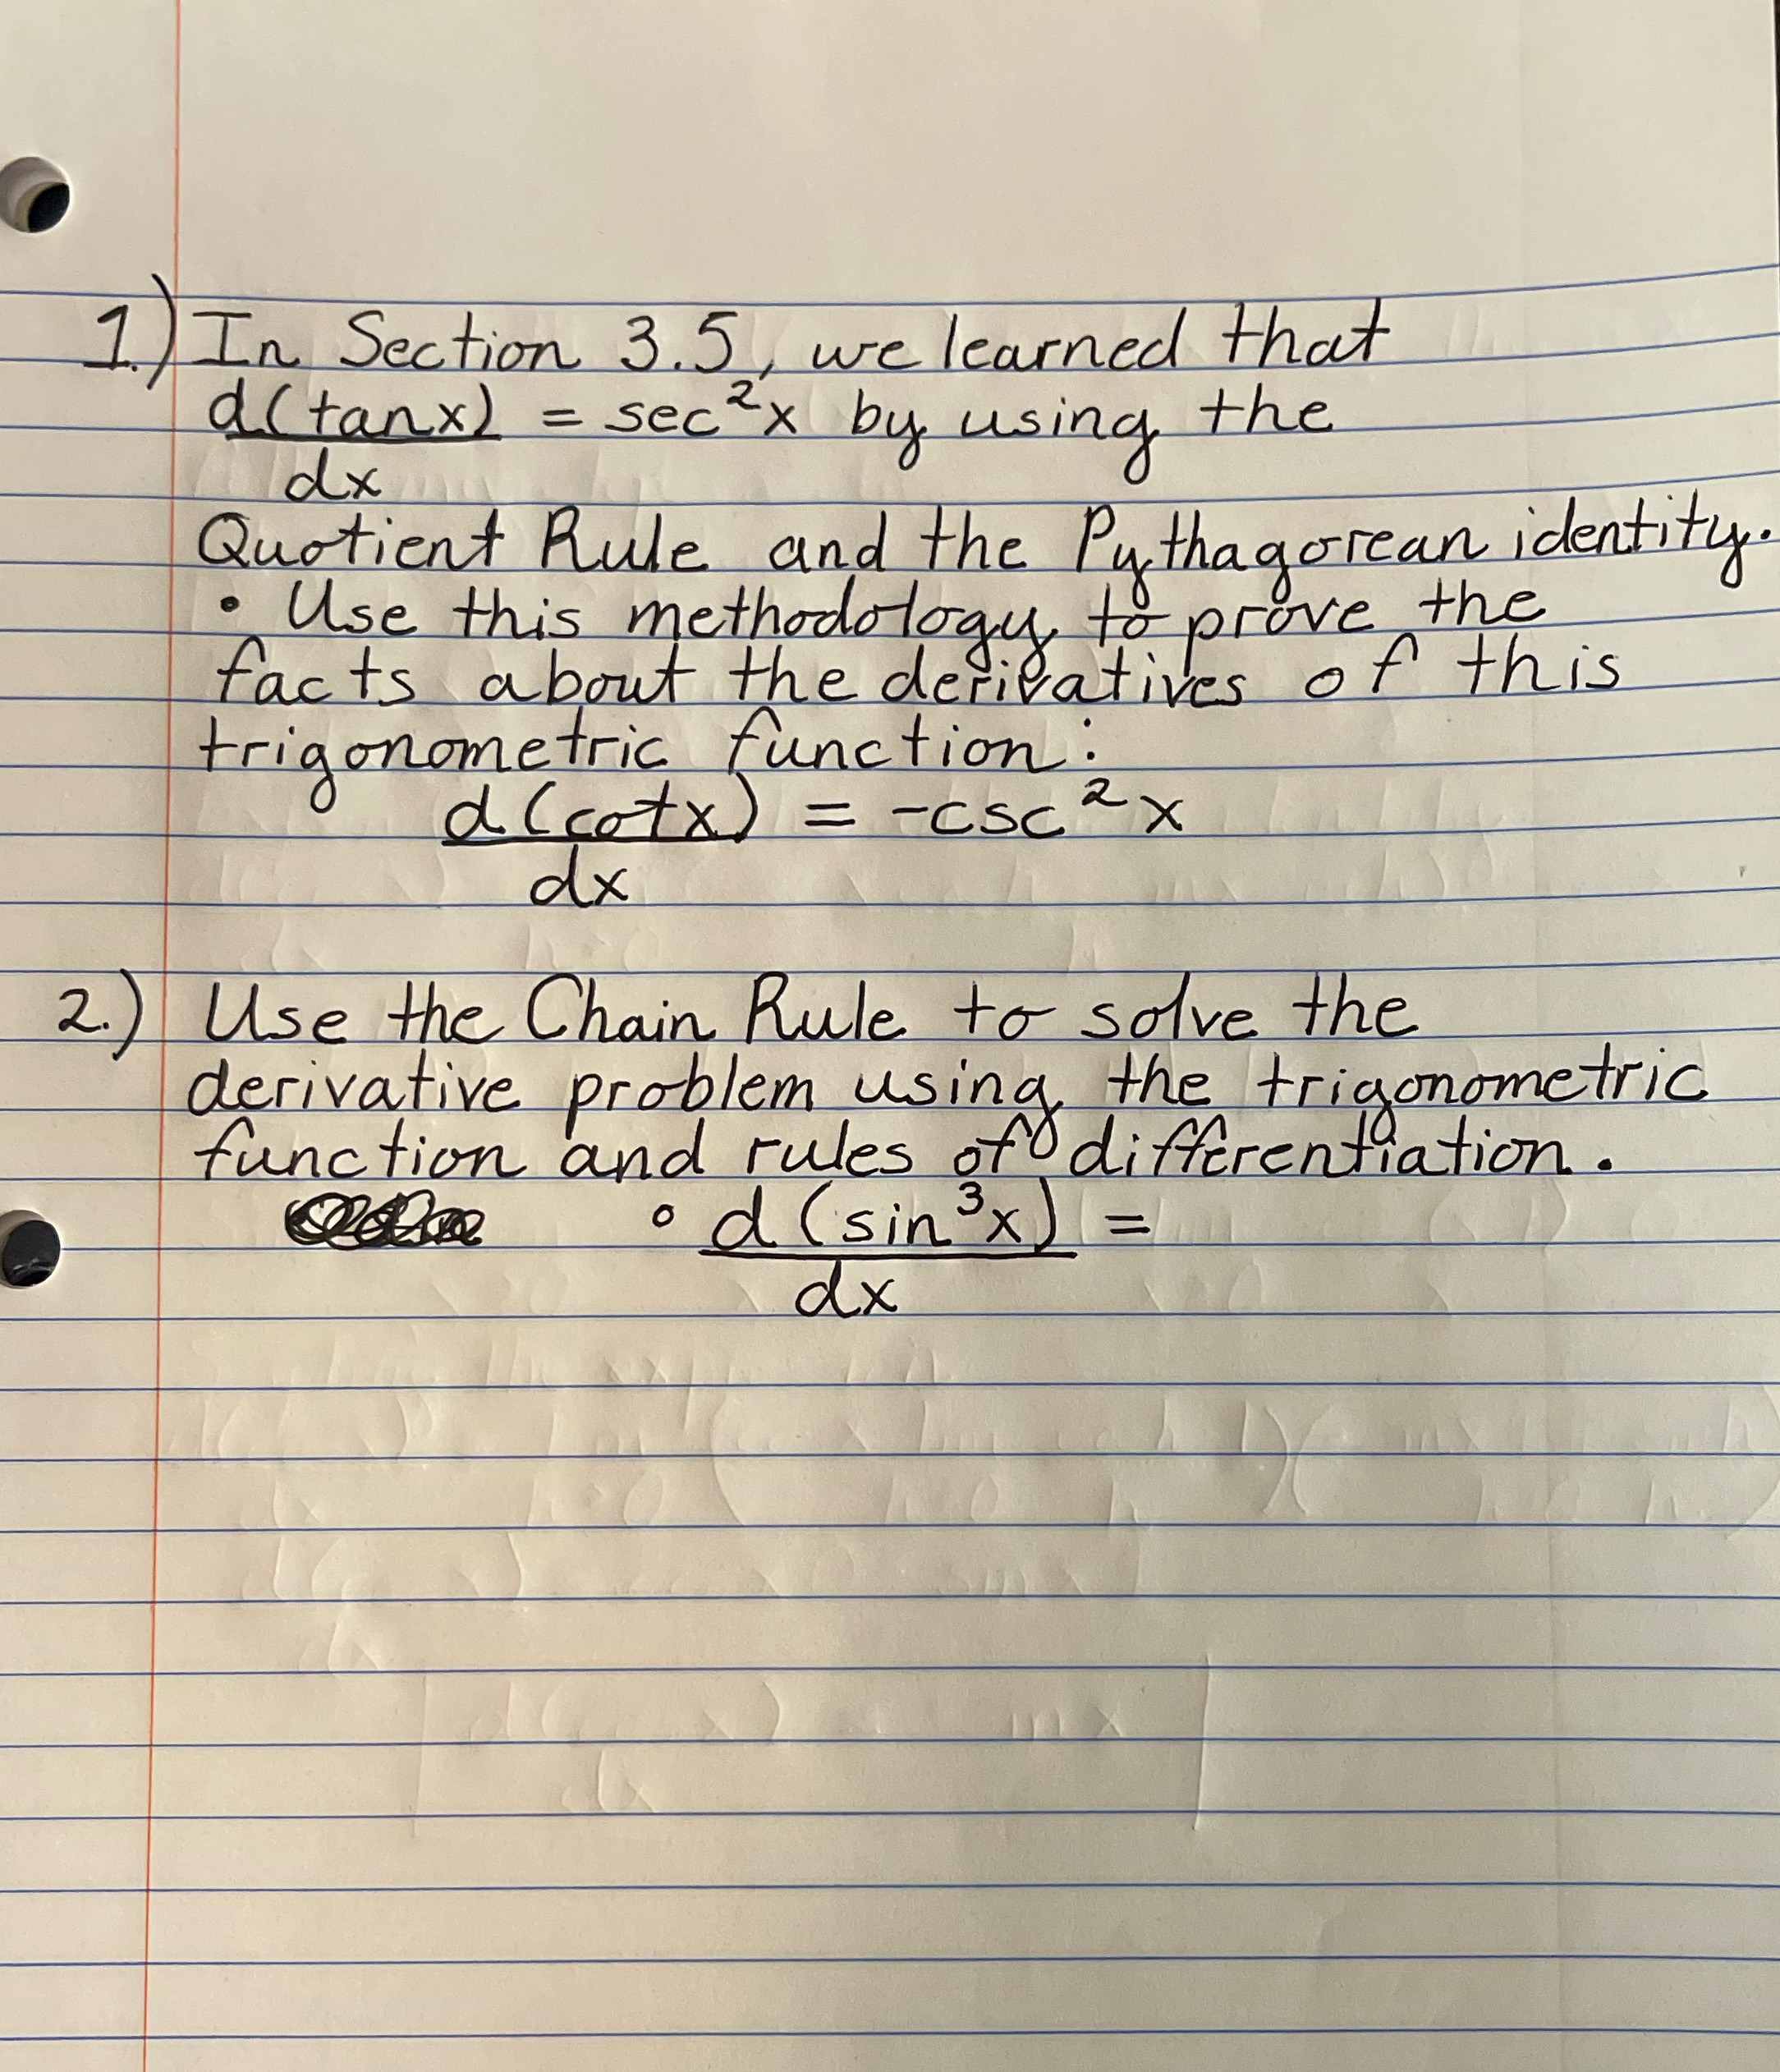 1.) In Section 3.5, we learned that
d(tanx) = sec²x by using the
dx
Quotient Rule and the Pythagorean identity.
• Use this methodology to prove the
facts about the derivatives of this
trigonometric function:
d(cotx) = -csc²x
dx
2.) Use the Chain Rule to solve the
derivative problem using the trigonometric
function and rules of differentiation.
• d(sin³x) =
dx